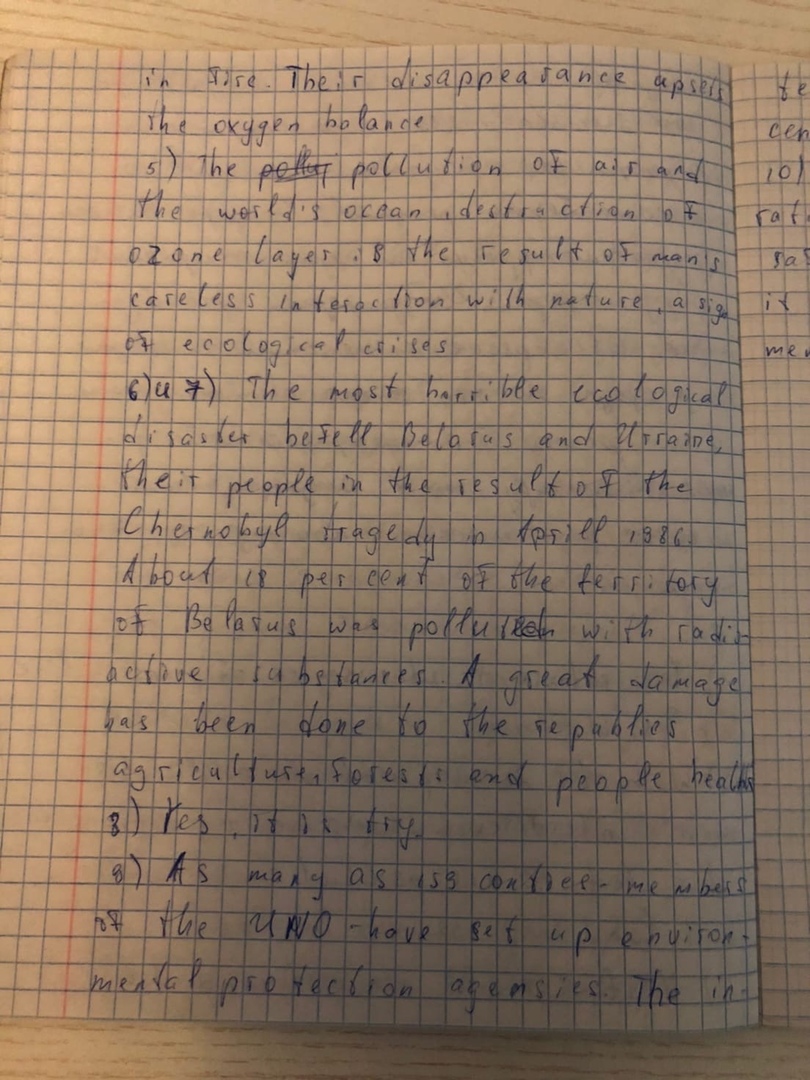 in fire. Their disappearance upsets
the oxygen balance
5) The pollution of air and
the world's ocean, destruction of
ozone layer is the result of man's
careless interaction with nature, a sign
of ecological crises
6) и 7) The most horrible ecological
disaster befell Belarus and Ukraine,
their people in the result of the
Chernobyl tragedy in Aprill 1986.
About 18 per cent of the territory
of Belarus was polluted with radio-
active substances. A great damage
has been done to the republics
agriculture, forests and people health
8) Yes, it is try.
9) As many as 159 contries-members
of the UNO - have set up environ-
mental protection agensies. The in-
te
cen
10)
rati
sat
it
men